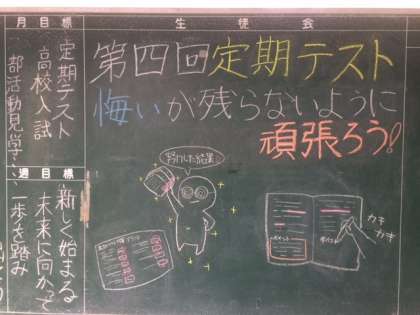 月目標
定期テスト
高校入試
部活動見学
週目標
新しく始まる
未来に向かって
一歩を踏み
生徒会
第四回定期テスト
悔いが残らないように
頑張ろう!
努力した結果
カキ
カキ